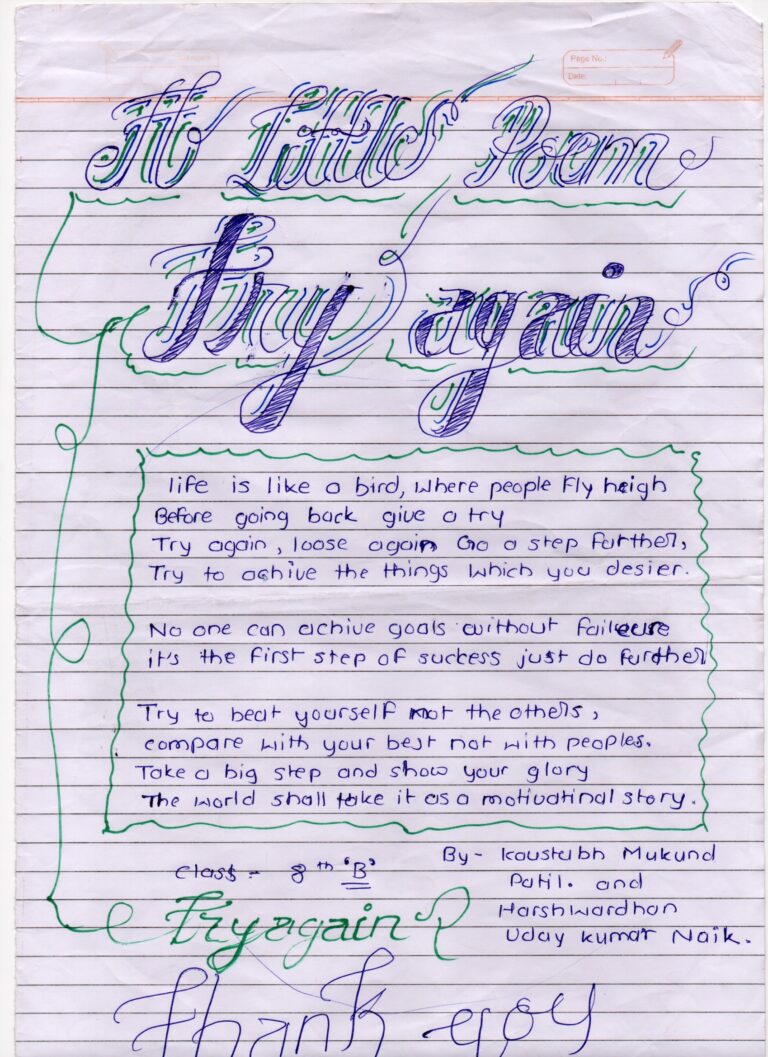 Page No.:
Date:
A Little Poem
Try again
life is like a bird, where people fly heigh
Before going back give a try
Try again, loose again Go a step further,
Try to achive the things which you desier.
No one can achive goals without faileure
it's the first step of success just do further
Try to beat yourself not the others,
compare with your best not with peoples.
Take a big step and show your glory
The world shall take it as a motivatinal story.
Class - 8th 'B'
By - Koustubh Mukund
Patil. and
Harshwardhan
Uday kumar Naik.
Try again
Thank you